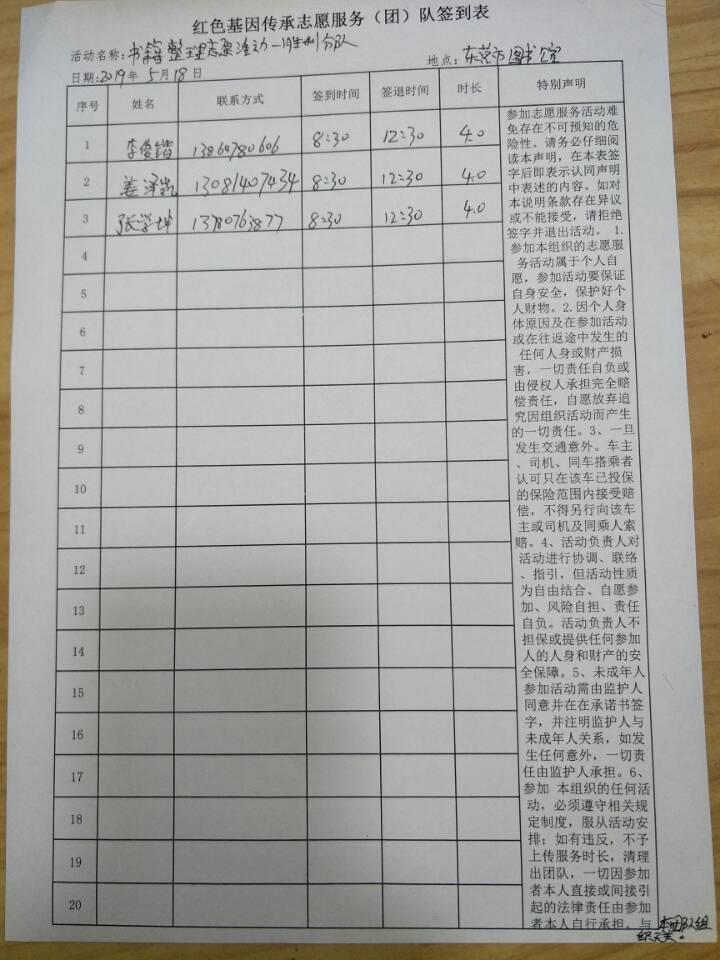 红色基因传承志愿服务（团）队签到表
活动名称:书籍整理志愿活动一分队
地点:东营市图书馆
日期:2019年5月18日
序号 姓名 联系方式 签到时间 签退时间 时长 特别声明
1 李俊锴 13864780606 8:30 12:30 4.0
2 姜泽凯 13081407434 8:30 12:30 4.0
3 张学坤 13780763877 8:30 12:30 4.0
4
5
6
7
8
9
10
11
12
13
14
15
16
17
18
19
20
参加志愿服务活动难
免存在不可预知的危
险性。请务必仔细阅
读本声明，在本表签
字后即表示认同声明
中表述的内容。如对
本说明条款存在异议
或不能接受，请拒绝
签字并退出活动。 1.
参加本组织的志愿服
务活动属于个人自
愿，参加活动要保证
自身安全，保护好个
人财物。2.因个人身
体原因及在参加活动
或在往返途中发生的
任何人身或财产损
害，一切责任自负或
由侵权人承担完全赔
偿责任，自愿放弃追
究因组织活动而产生
的一切责任。3、一旦
发生交通意外。车主
、司机、同车搭乘者
认可只在该车已投保
的保险范围内接受赔
偿，不得另行向该车
主或司机及同乘人索
赔。4、活动负责人对
活动进行协调、联络
、指引，但活动性质
为自由结合、自愿参
加、风险自担、责任
自负。活动负责人不
担保或提供任何参加
人的人身和财产的安
全保障。5、未成年人
参加活动需由监护人
同意并在在承诺书签
字，并注明监护人与
未成年人关系，如发
生任何意外，一切责
任由监护人承担。6、
参加 本组织的任何活
动，必须遵守相关规
定制度，服从活动安
排；如有违反，不予
上传服务时长，清理
出团队，一切因参加
者本人直接或间接引
起的法律责任由参加
者本人自行承担，与
本团队组
织无关。